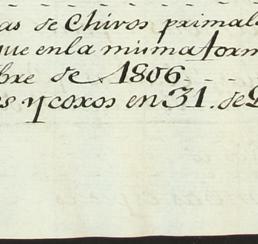 as de Chivos primal
que en la misma form
bre de 1806
s y coxos en 31. de